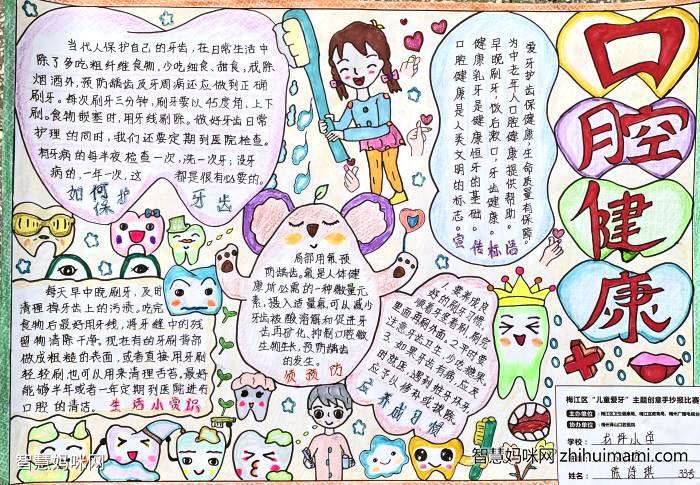 当代人保护自己的牙齿，在日常生活中
除了多吃粗纤维食物，少吃细食、甜食，戒除
烟酒外，预防龋齿及牙周病还应做到正确
刷牙。每次刷牙三分钟，刷牙要以45度角，上下
刷。食物嵌塞时，用牙线剔除。做好牙齿日常
护理的同时，我们还要定期到医院检查。
有牙病的每半夜检查一次，洗一次牙；没牙
病的，一年一次，这都是很有必要的。
如何保护牙齿
爱牙护齿保健康，生命质量有保障。
为中老年人口腔健康提供帮助。
早晚刷牙，饭后漱口，牙齿健康。
健康乳牙是健康恒牙的基础。
口腔健康是人类文明的标志。
宣传标语
口腔健康
局部用氟预
防龋齿。氟是人体健
康所必需的一种微量元
素，摄入适量氟可以减少
牙齿被酸溶解和促进牙
齿再矿化，抑制口腔微
生物生长，预防龋齿
的发生。
须预防
每天早中晚刷牙，及时
清理掉牙齿上的污渍。吃完
食物后最好用牙线，将牙缝中的残
留物清除干净。现在有的牙刷背部
做成粗糙的表面，或者直接用牙刷
轻轻刷也可以用来清理舌苔。最好
能够半年或者一年定期到医院进行
口腔的清洁。
生活小常识
要养成良
好的刷牙习惯，
顺着牙意着刷，刷后
里面再刷外面。2.平时要
注意牙齿卫生，少吃糖果。
3.如果牙齿有病，应及
时就医，遇到蛀牙坏牙，
应予以修补或拔除。
养成习惯
梅江区“儿童爱牙”主题创意手抄报比赛
主办单位：
协办单位：
学校：
姓名：
33号
智慧妈咪网
智慧妈咪网 zhihuimami.com